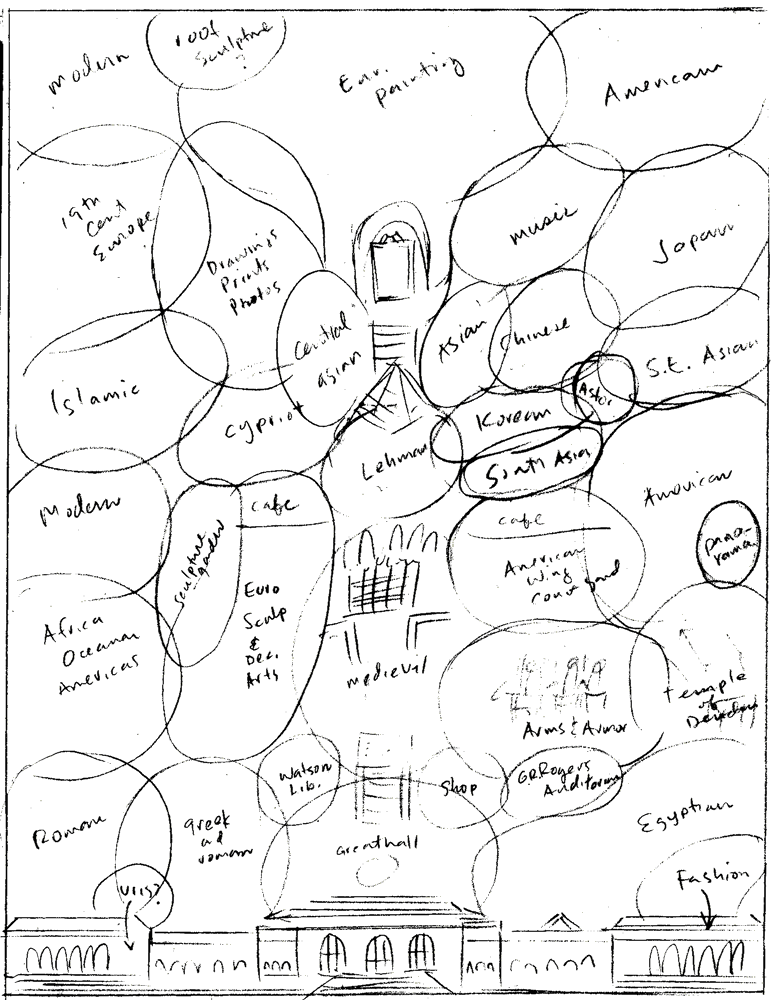 modern
roof
sculpture
?
Eur.
painting
American
19th
Cent
Europe
Drawings
Prints
Photos
music
Japan
Central
asian
Asian
Chinese
S.E. Asian
Astor
Islamic
cypriot
Korean
Lehman
South Asia
American
pano-
rama
Modern
sculpture
garden
cafe
Euro
Sculp
&
Dec.
Arts
cafe
American
wing
court yard
Africa
Oceania
Americas
medieval
Arms & Armor
temple
of
Dendur
Watson
Lib.
Shop
G.R.Rogers
Auditorium
Roman
greek
and
roman
Great hall
Egyptian
Uris?
Fashion